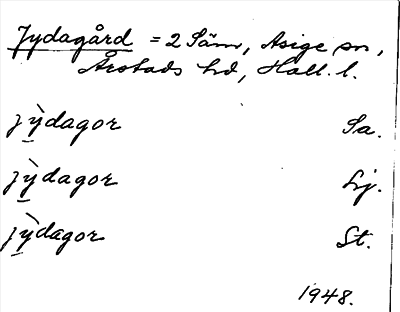 Jydagård = 2 Säm, Asige sn,
Årstads hd, Hall. l.
jỳ̱dagor Sa.
jỳ̱dagor Lj.
jỳ̱dagor St.
1948.